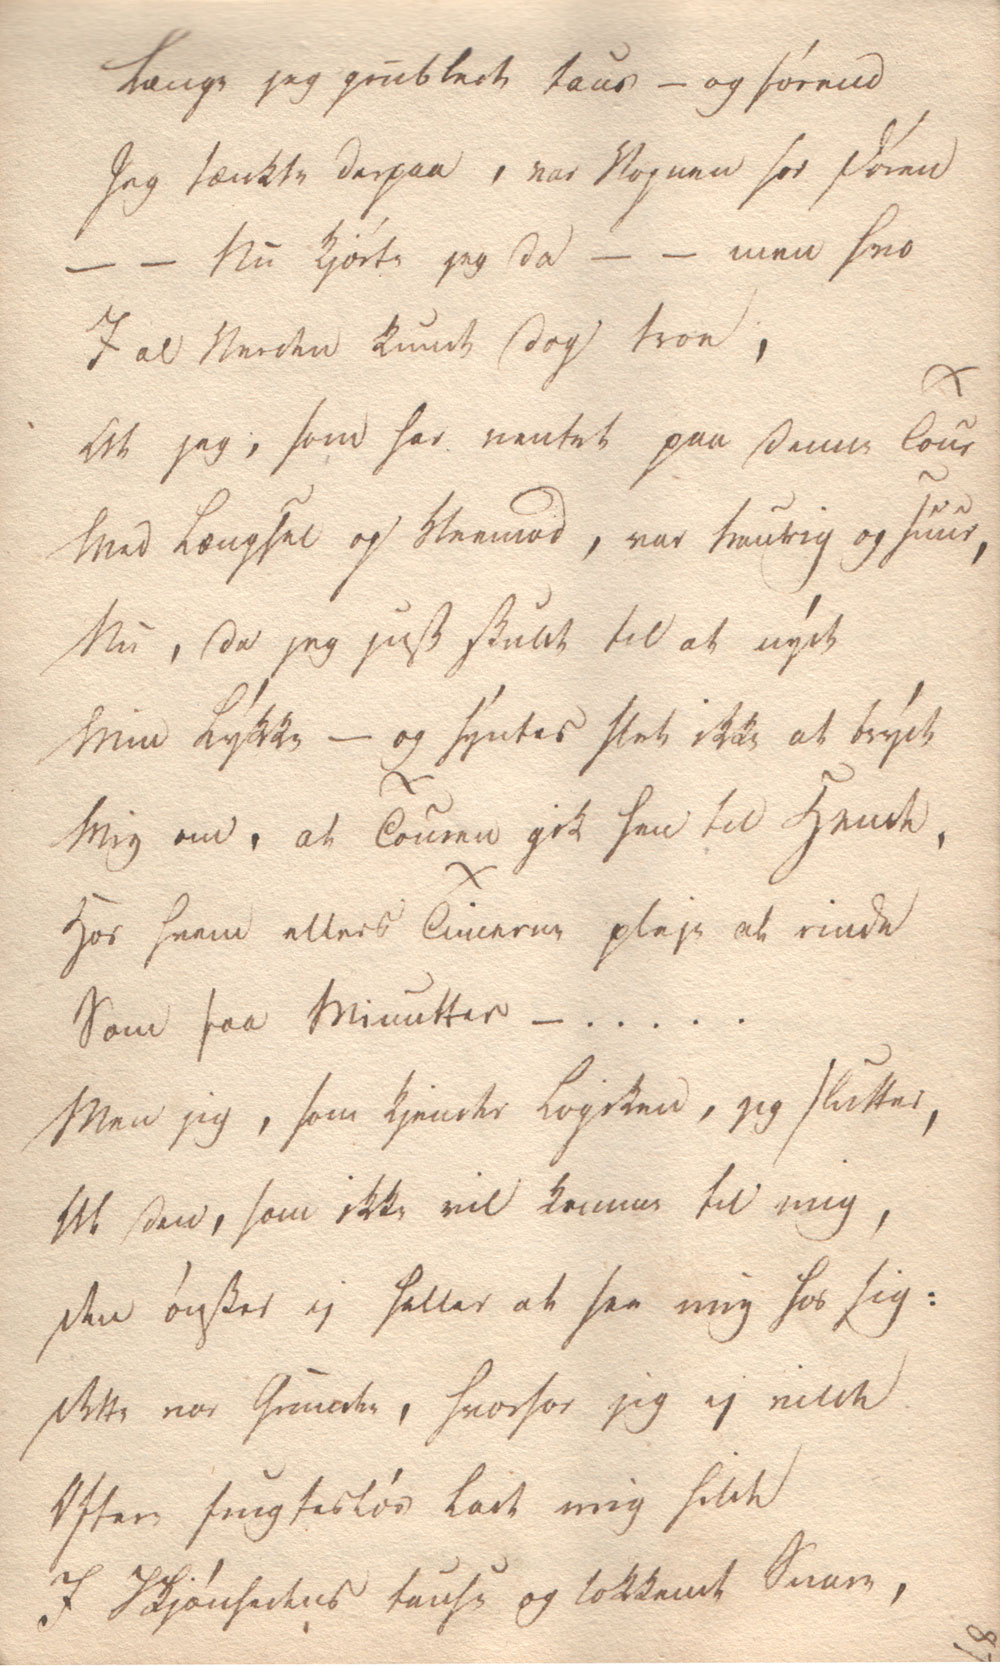 Længe jeg grublede taus — og förend
Jeg tænkte derpaa, var Vognen for Dören
— — Nu kjörte jeg da — — men hvo
I al Verden kunde dog troe,
At jeg, som har ventet paa denne Tour
Med Længsel og Veemod, var traurig og suur,
Nu, da jeg just skulde til at nyde
Min Lykke — og syntes slet ikke at bryde
Mig om, at Touren gik hen til Hende,
Hos hvem ellers Timerne pleje at rinde
Som faa Minutter — . . . . .
Men jeg, som kjender Logiken, jeg slutter,
At den, som ikke vil komme til mig,
Den önsker ej heller at see mig hos sig:
Dette var Grunden, hvorfor jeg ej vilde
Oftere frugteslös lade mig hilde
I Skjönhedens tause og lokkende Snare,